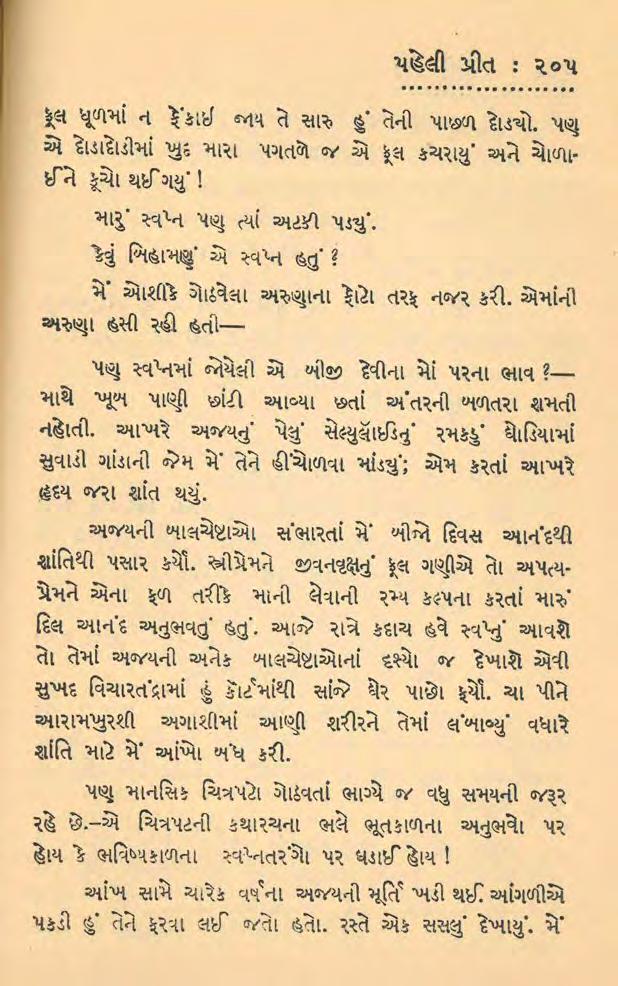 પહેલી પ્રીત : ૨૦૫
ફૂલ ધૂળમાં ન ફેંકાઈ જાય તે સારુ હું તેની પાછળ દોડ્યો. પણ
એ દોડાદોડીમાં ખુદ મારા પગતળે જ એ ફૂલ કચરાયું અને ચોળા-
ઈને કૂચો થઈ ગયું !
મારું સ્વપ્ન પણ ત્યાં અટકી પડ્યું.
કેવું બિહામણું એ સ્વપ્ન હતું ?
મેં ઓશીકે ગોઠવેલા અરુણાના ફોટા તરફ નજર કરી. એમાંની
અરુણા હસી રહી હતી—
પણ સ્વપ્નમાં જોયેલી એ બીજી દેવીના મોં પરના ભાવ ?—
માથે ખૂબ પાણી છાંટી આવ્યા છતાં અંતરની બળતરા શમતી
નહોતી. આખરે અજયનું પેલું સેલ્યુલૉઈડનું રમકડું ઘોડિયામાં
સુવાડી ગાંડાની જેમ મેં તેને હીંચોળવા માંડ્યું; એમ કરતાં આખરે
હૃદય જરા શાંત થયું.
અજયની બાલચેષ્ટાઓ સંભારતાં મેં બીજો દિવસ આનંદથી
શાંતિથી પસાર કર્યો. સ્ત્રીપ્રેમને જીવનવૃક્ષનું ફૂલ ગણીએ તો અપત્ય-
પ્રેમને એના ફળ તરીકે માની લેવાની રમ્ય કલ્પના કરતાં મારું
દિલ આનંદ અનુભવતું હતું. આજે રાત્રે કદાચ હવે સ્વપ્નું આવશે
તો તેમાં અજયની અનેક બાલચેષ્ટાઓનાં દૃશ્યો જ દેખાશે એવી
સુખદ વિચારતંદ્રામાં હું કોર્ટમાંથી સાંજે ઘેર પાછો ફર્યો. ચા પીને
આરામખુરશી અગાશીમાં આણી શરીરને તેમાં લંબાવ્યું વધારે
શાંતિ માટે મેં આંખો બંધ કરી.
પણ માનસિક ચિત્રપટો ગોઠવતાં ભાગ્યે જ વધુ સમયની જરૂર
રહે છે.–એ ચિત્રપટની કથારચના ભલે ભૂતકાળના અનુભવો પર
હોય કે ભવિષ્યકાળના સ્વપ્નતરંગો પર ઘડાઈ હોય !
આંખ સામે ચારેક વર્ષના અજયની મૂર્તિ ખડી થઈ. આંગળીએ
પકડી હું તેને ફરવા લઈ જતો હતો. રસ્તે એક સસલું દેખાયું. મેં